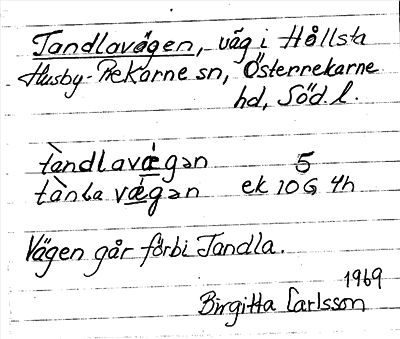 Tandlavägen, väg i Hållsta
Husby-Rekarne sn, Österrekarne
hd, Söd. l.
tàndlavǽgən 5
tànla vǽgən ek 10G 4h
Vägen går förbi Tandla.
1969
Birgitta Carlsson